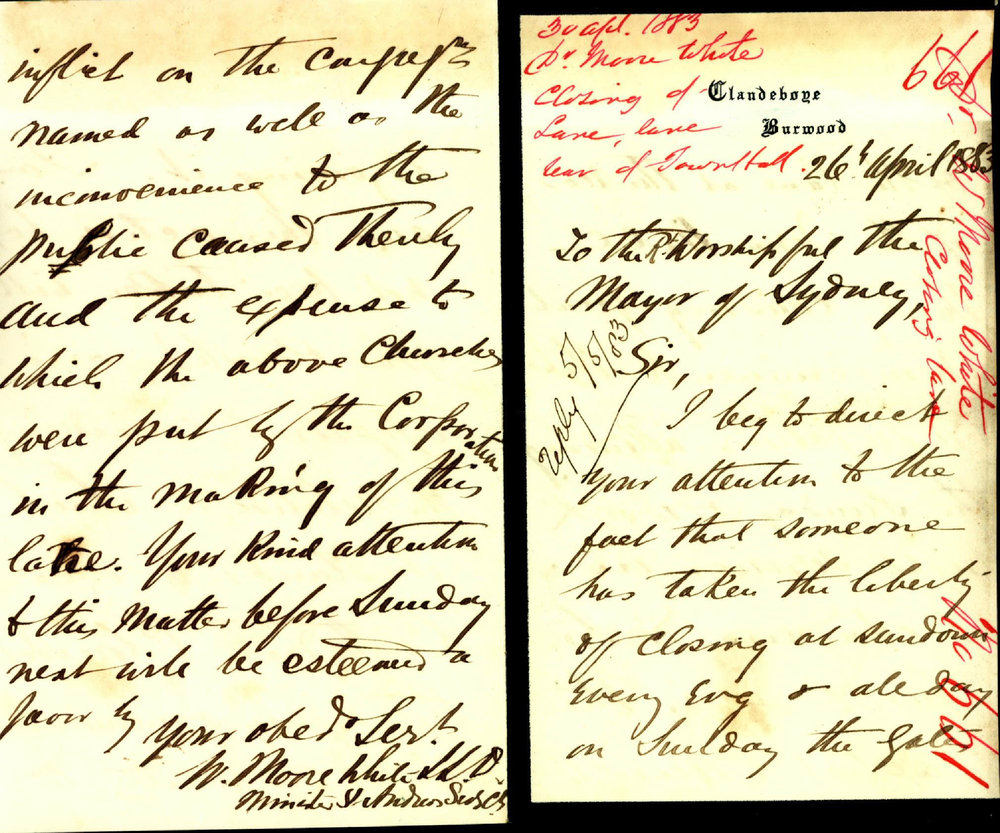 inflict on the Congregtn
named as well as the
inconvenience to the
public caused thereby
and the expense to
which the above Churches
were put by the Corporation
in the making of this
lane. Your kind attention
to this matter before Sunday
next will be esteemed a
favor by
your obedt Servt
W. Moore White LL.D.
Minister St Andrews
30 apl. 1883
Dr. Moore White
Closing of
Lane, lane
rear of Townhall.
Clandeboye
Burwood
26th April 1883
661
Dr W Moore White
Closing lane
661
To the Rt Worshipful the
Mayor of Sydney,
reply 5/5/83
Sir,
I beg to direct
your attention to the
fact that someone
has taken the liberty
of closing at sundown
every Evg & all day
on Sunday the Gates